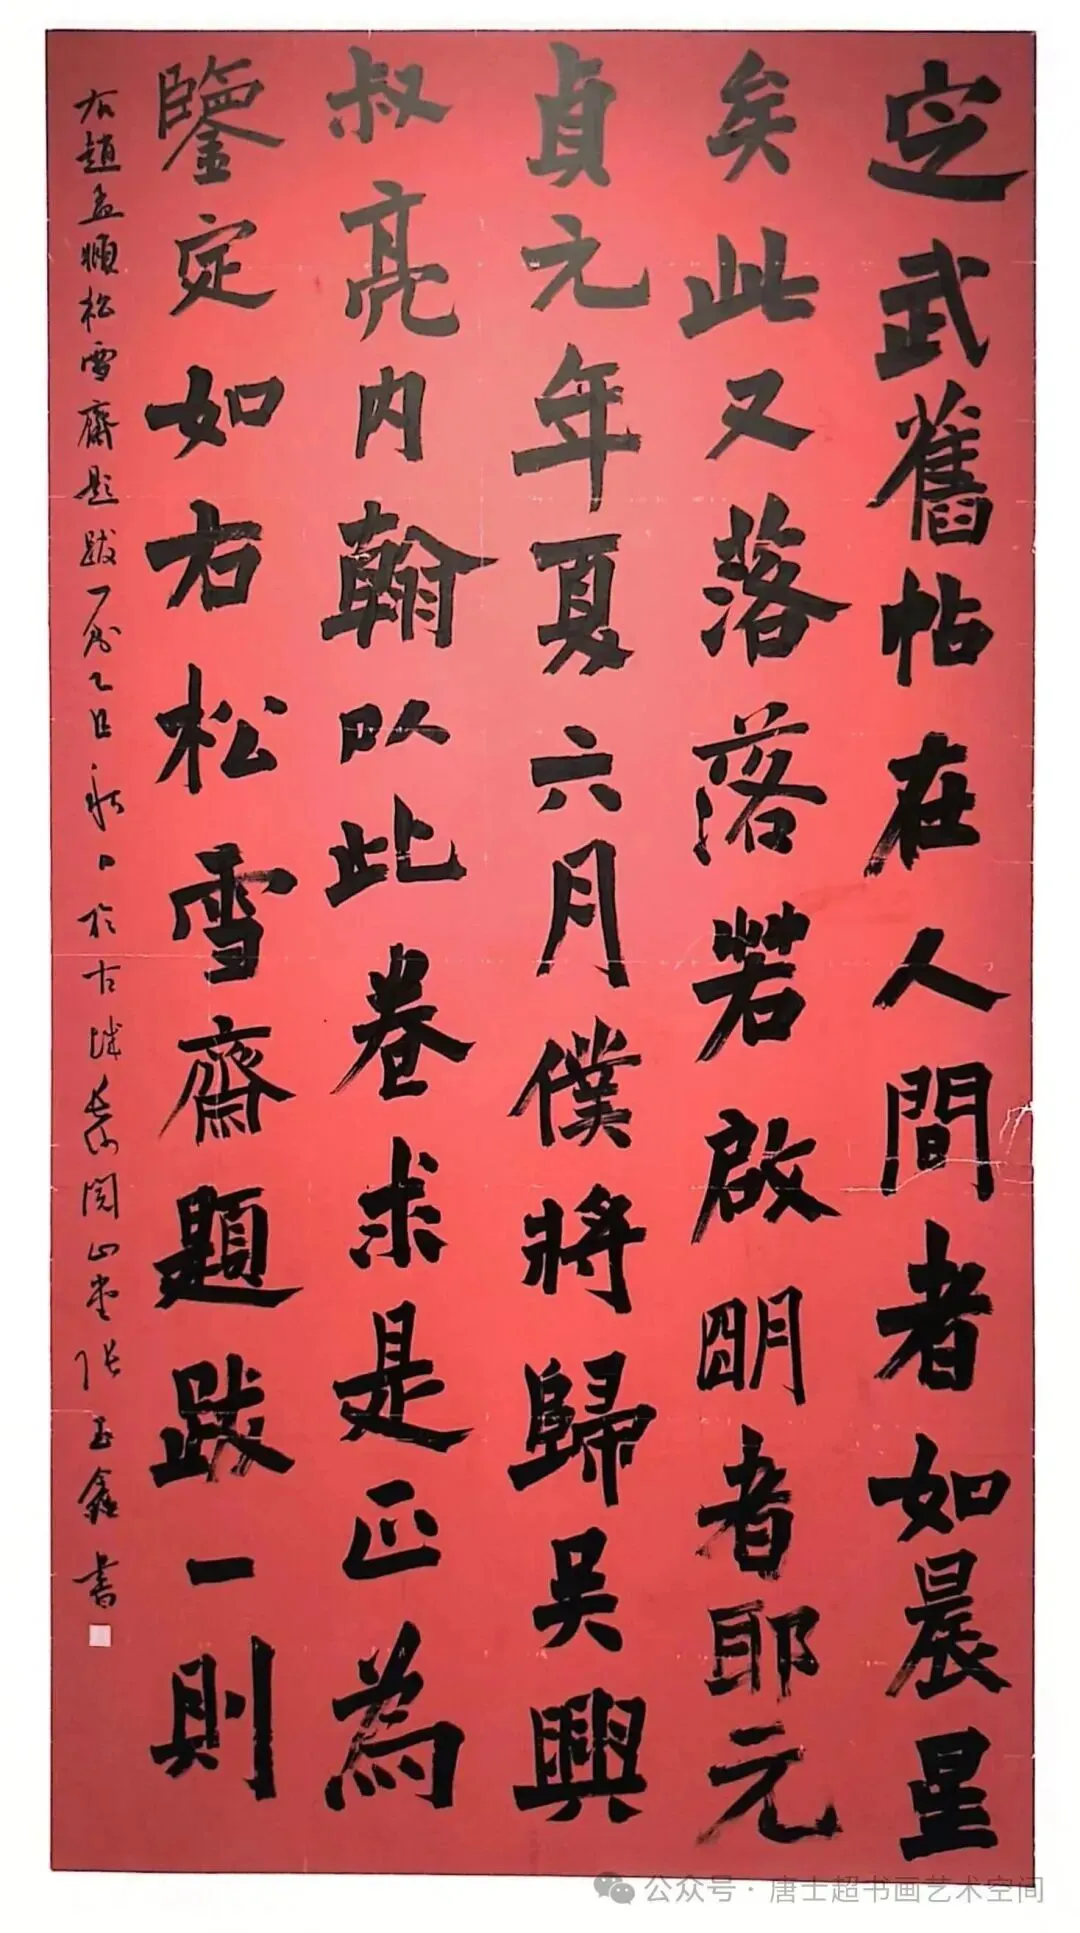 定武舊帖在人間者如晨星
矣此又落落若啟明者耶元
貞元年夏六月僕將歸吳興
叔亮内翰以此卷求是正為
鑒定如右松雪齋題跋一則
右趙孟頫松雪齋題跋一则乙巳秋日於古城 閲山堂張玉鑫書
公众号·唐士超书画艺术空间